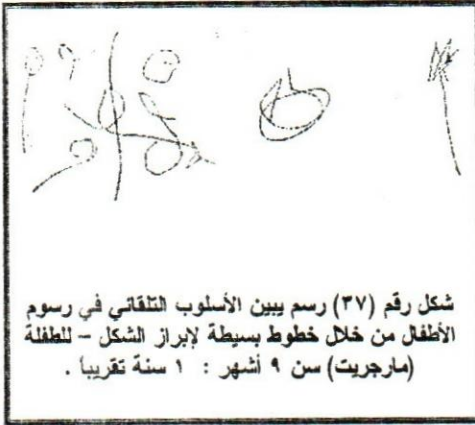 شكل رقم (٣٧) رسم يبين الأسلوب التلقائي في رسوم
الأطفال من خلال خطوط بسيطة لإبراز الشكل – للطفلة
(مارجريت) سن ٩ أشهر : ١ سنة تقريباً .